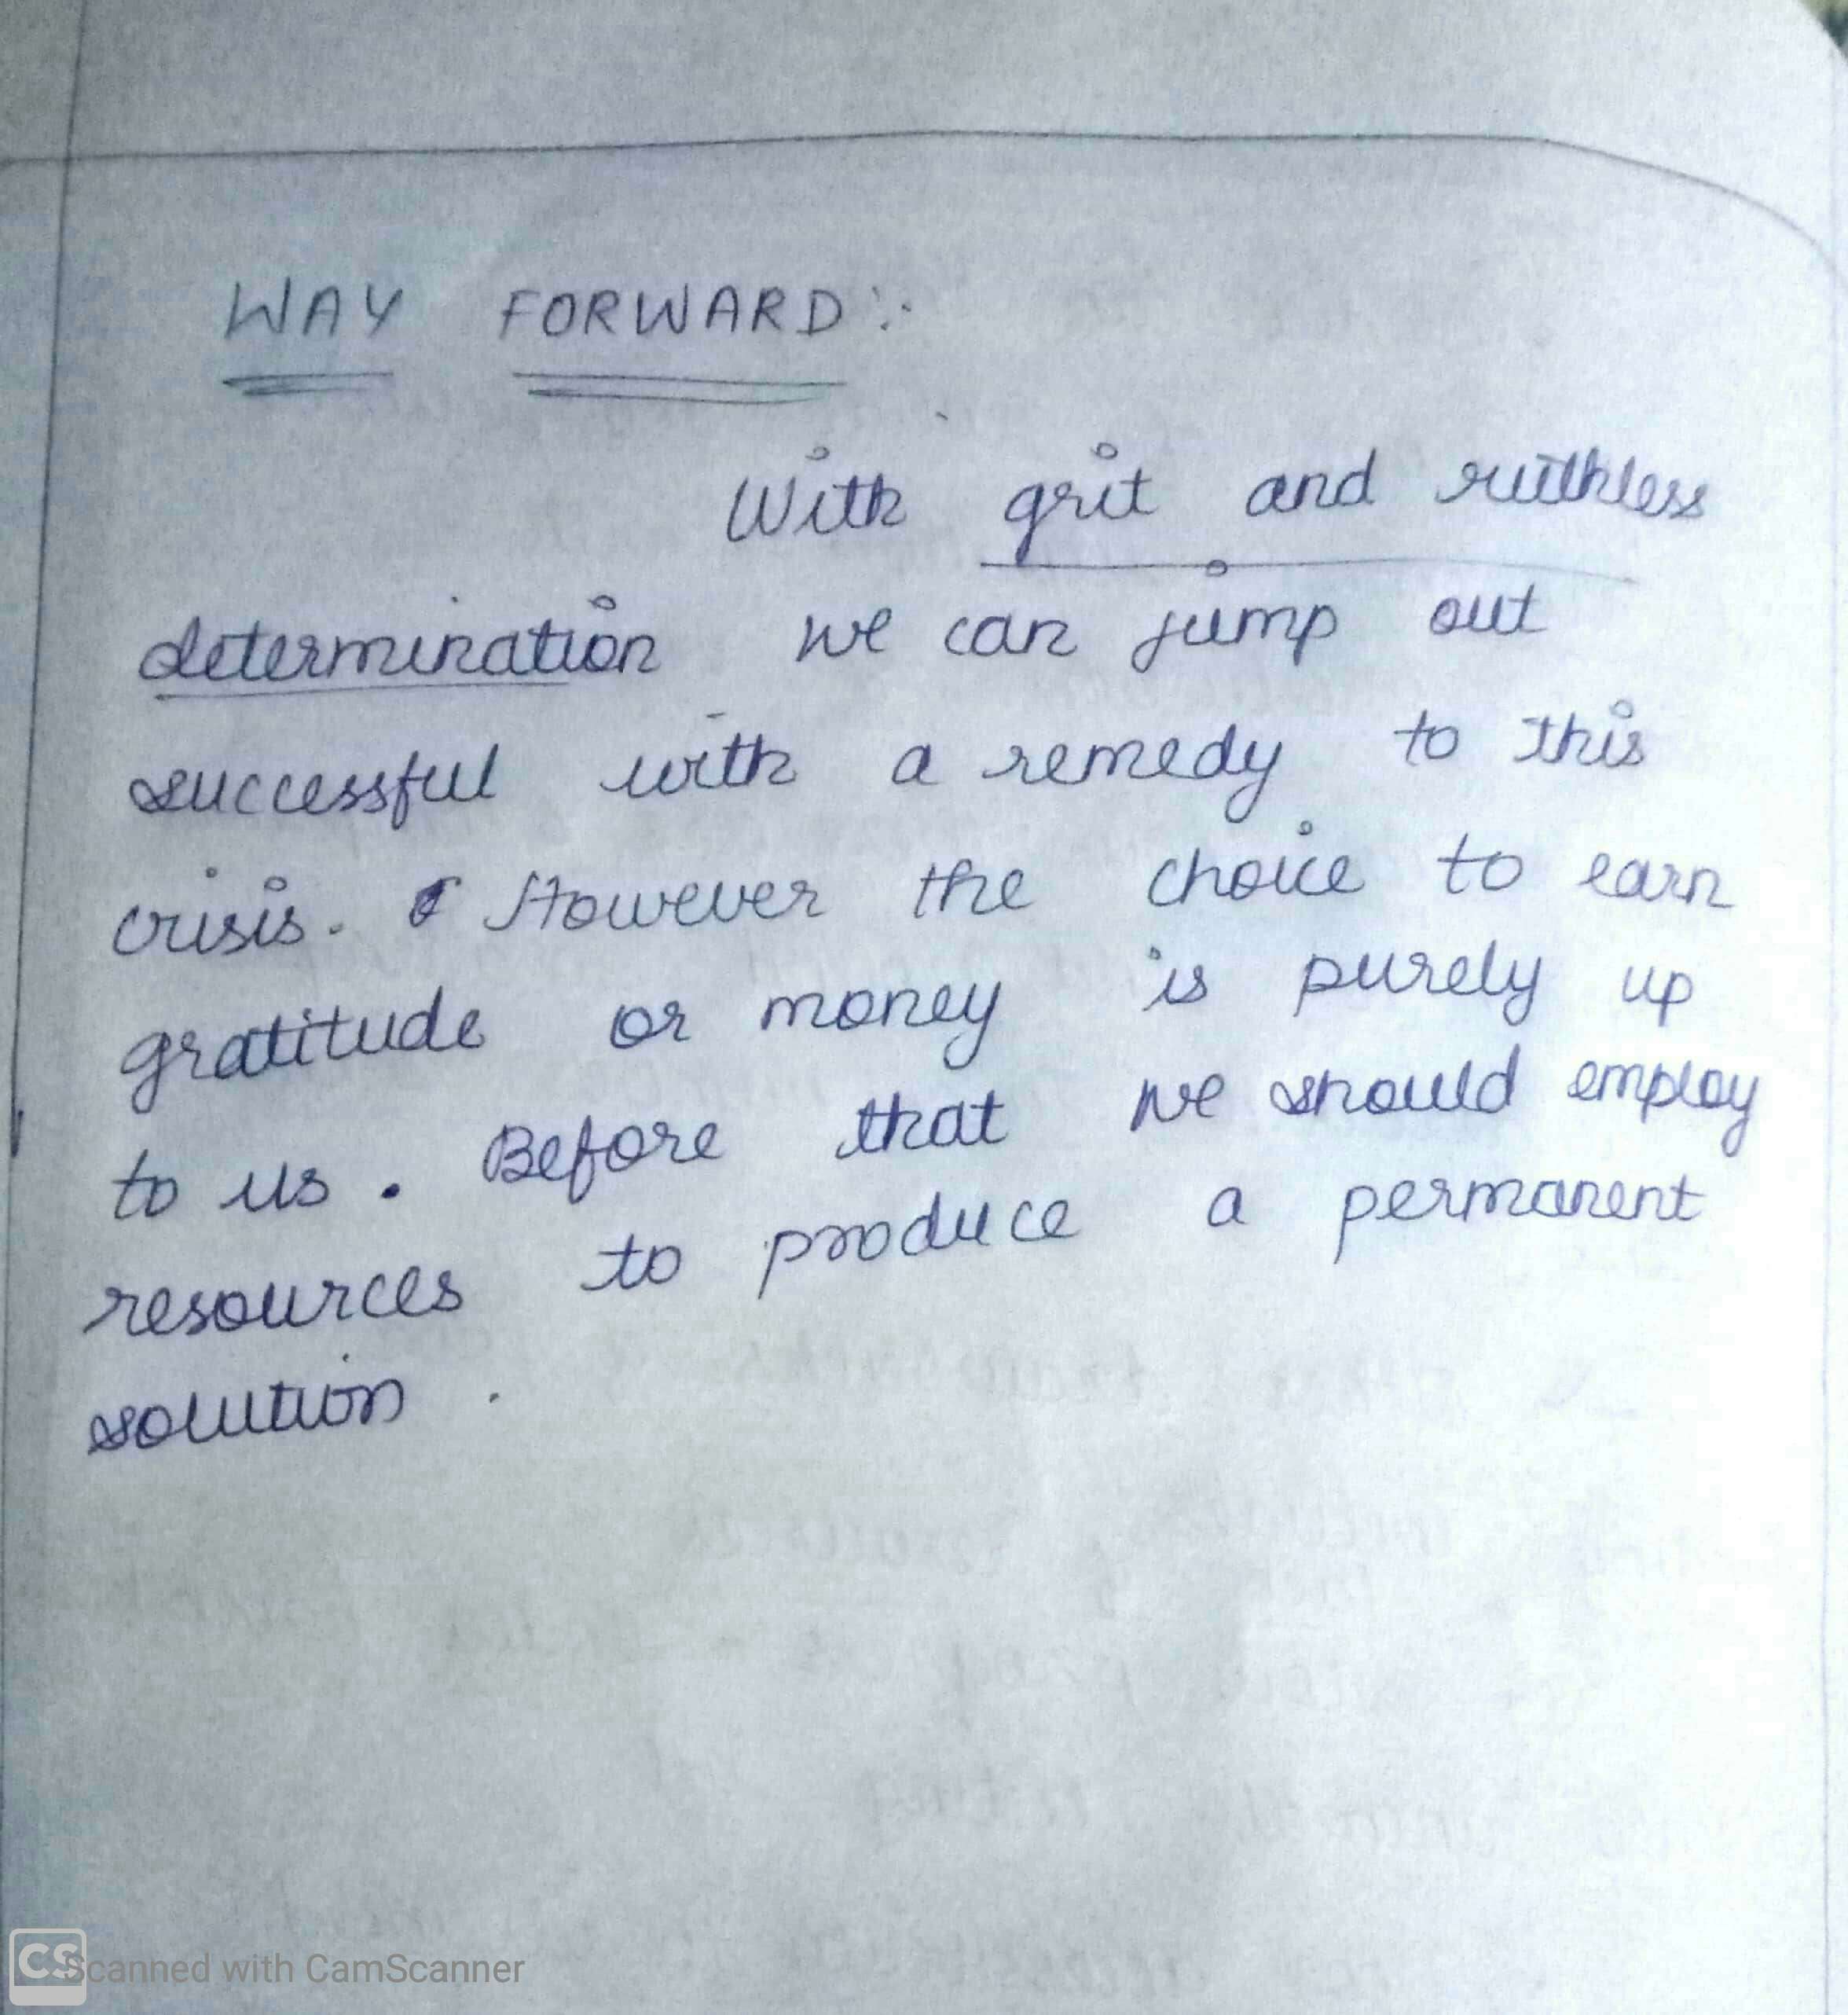 WAY FORWARD:-
With grit and ruthless
determination we can jump out
successful with a remedy to this
crisis. However the choice to earn
gratitude or money is purely up
to us. Before that we should employ
resources to produce a permanent
solution.
CS Scanned with CamScanner